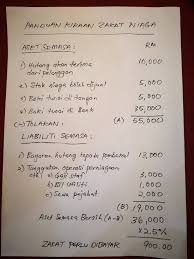 PANDUAN KIRAAN ZAKAT NIAGA
ASET SEMASA: RM
1) Hutang akan terima 10,000
dari pelanggan
2) Stok niaga boleh dijual 5,000
3) Baki tunai di tangan 5,000
4) Baki tunai di Bank 35,000
(-) TOLAKAN: (A) 55,000
LIABILITI SEMASA:
1) Bayaran hutang kepada pembekal 13,000
2) Tunggakan operasi perniagaan
a) Gaji staf 3,000
b) Bil utiliti 1,000
c) Sewa 2,000
(B) 19,000
Aset Semasa Bersih (A-B) 36,000
x 2.5%
ZAKAT PERLU DIBAYAR 900.00